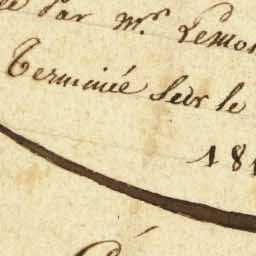 par Mr. Lemo
Terminée sur le
181